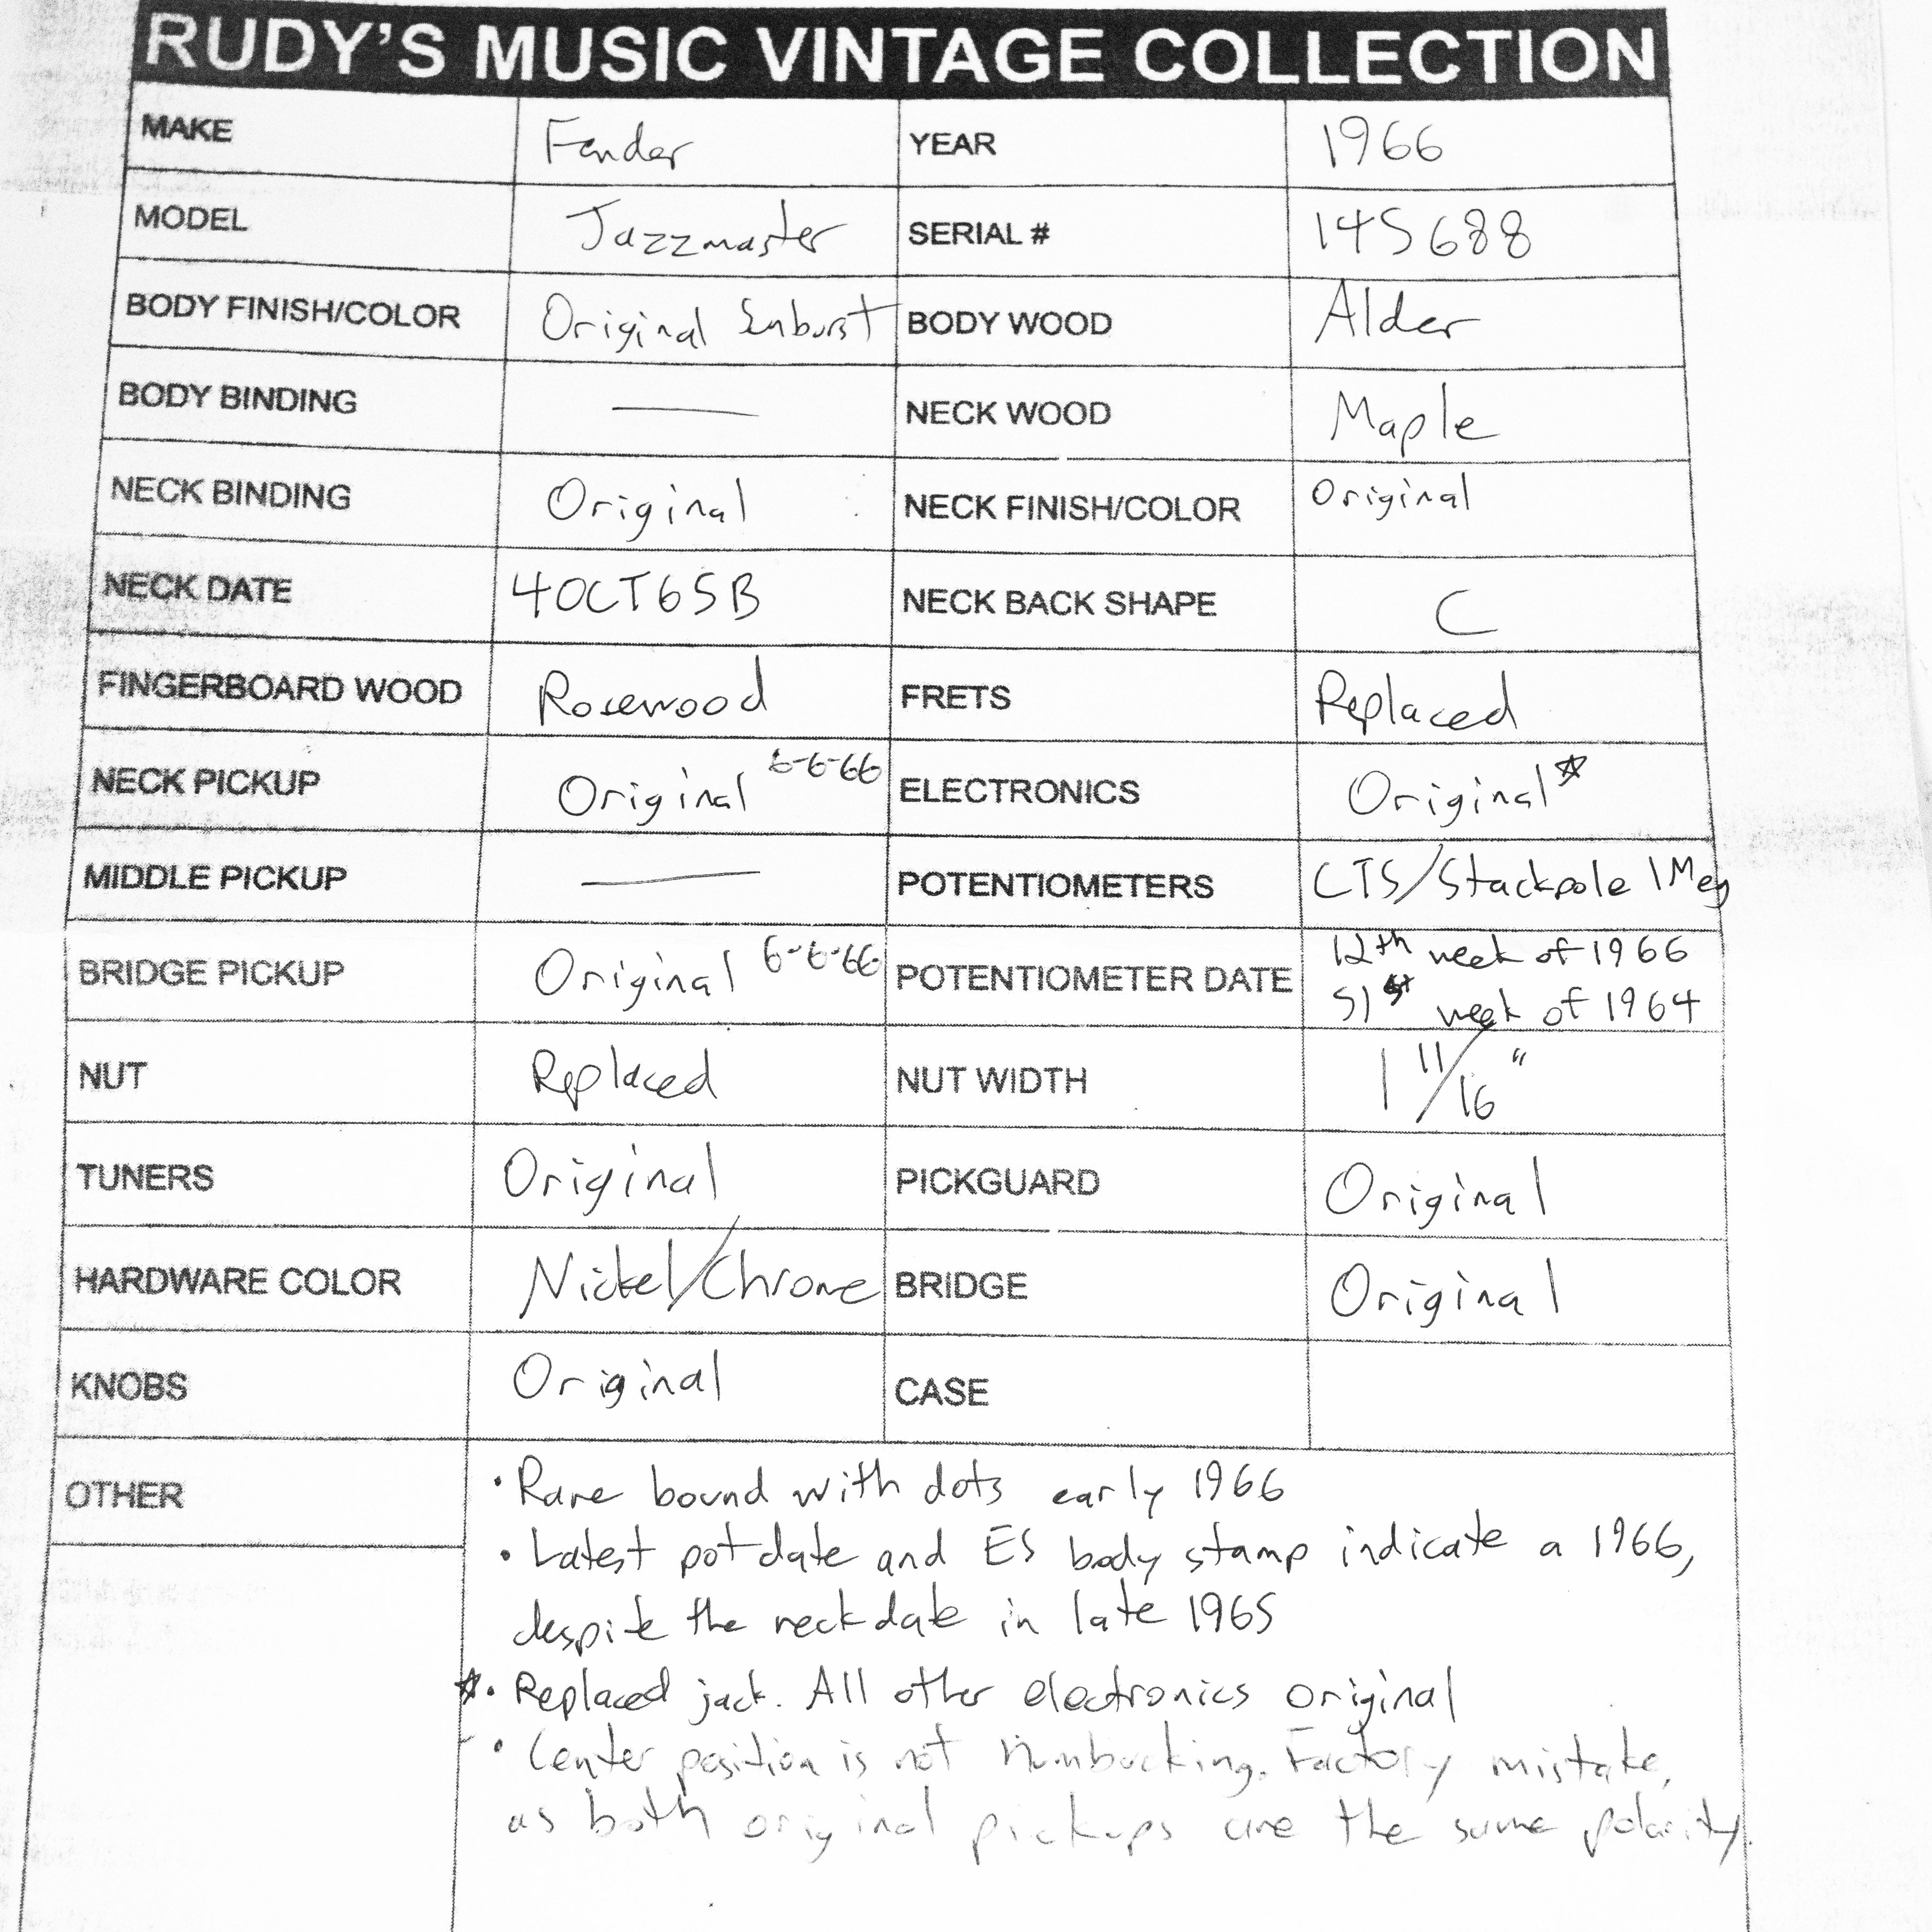 RUDY'S MUSIC VINTAGE COLLECTION
MAKE Fender YEAR 1966
MODEL Jazzmaster SERIAL # 145688
BODY FINISH/COLOR Original Sunburst BODY WOOD Alder
BODY BINDING — NECK WOOD Maple
NECK BINDING Original NECK FINISH/COLOR Original
NECK DATE 4OCT65B NECK BACK SHAPE C
FINGERBOARD WOOD Rosewood FRETS Replaced
NECK PICKUP Original 6-6-66 ELECTRONICS Original☆
MIDDLE PICKUP — POTENTIOMETERS CTS/Stackpole 1Meg
BRIDGE PICKUP Original 6-6-66 POTENTIOMETER DATE 12th week of 1966
51st week of 1964
NUT Replaced NUT WIDTH 1 11/16"
TUNERS Original PICKGUARD Original
HARDWARE COLOR Nickel/Chrome BRIDGE Original
KNOBS Original CASE
OTHER • Rare bound with dots early 1966
• Latest pot date and ES body stamp indicate a 1966,
despite the neck date in late 1965
☆• Replaced jack. All other electronics original
• Center position is not Humbucking. Factory mistake,
as both original pickups are the same polarity.